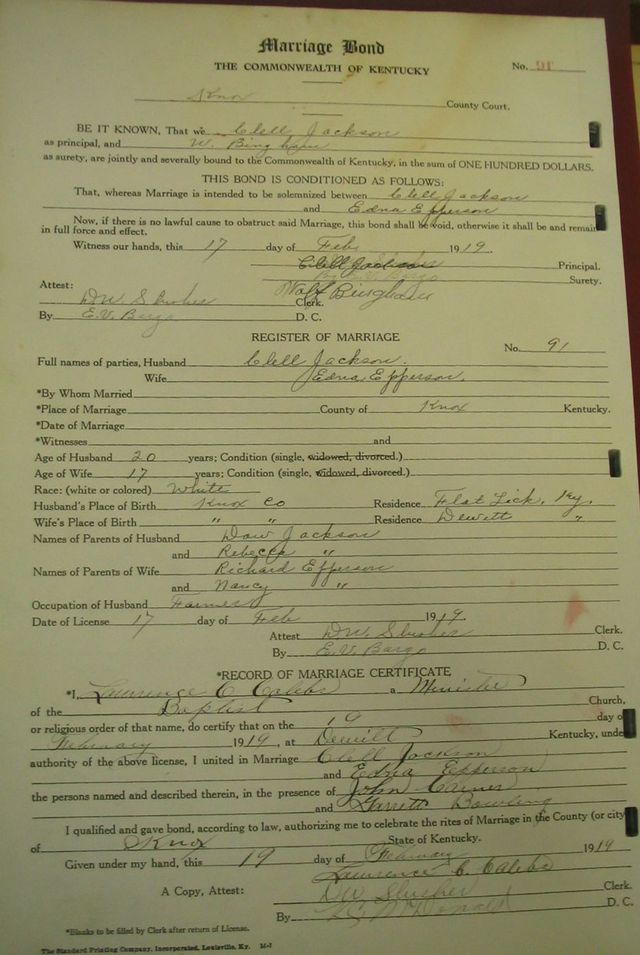 Marriage Bond
THE COMMONWEALTH OF KENTUCKY
No. 91
Knox County Court.
BE IT KNOWN, That we Clell Jackson
as principal, and W. Bingham
as surety, are jointly and severally bound to the Commonwealth of Kentucky, in the sum of ONE HUNDRED DOLLARS.
THIS BOND IS CONDITIONED AS FOLLOWS:
That, whereas Marriage is intended to be solemnized between Clell Jackson
and Edna Epperson
Now, if there is no lawful cause to obstruct said Marriage, this bond shall be void, otherwise it shall be and remain
in full force and effect.
Witness our hands, this 17 day of Feb 1919.
Clell Jackson Principal.
Surety.
Attest: Walf Bingham
DW Slusher Clerk.
By E.V. Bargo D. C.
REGISTER OF MARRIAGE
No. 91
Full names of parties, Husband Clell Jackson.
Wife Edna Epperson.
*By Whom Married
*Place of Marriage County of Knox Kentucky.
*Date of Marriage
*Witnesses and
Age of Husband 20 years; Condition (single, widowed, divorced.)
Age of Wife 17 years; Condition (single, widowed, divorced.)
Race: (white or colored) White
Husband's Place of Birth Knox Co Residence Flat Lick, Ky.
Wife's Place of Birth " " Residence Dewitt "
Names of Parents of Husband Daw Jackson
and Rebecca "
Names of Parents of Wife Richard Epperson
and Nancy "
Occupation of Husband Farmer
Date of License 17 day of Feb 1919.
Attest DW. Slusher Clerk.
By E.V. Bargo D. C.
*RECORD OF MARRIAGE CERTIFICATE
*I, Lawrence C Calebs a Minister
of the Baptist Church,
or religious order of that name, do certify that on the 19 day o
February 1919, at Dewitt Kentucky, unde
authority of the above license, I united in Marriage Clell Jackson
and Edna Epperson
the persons named and described therein, in the presence of John Carnes
and Garrett Bowling
I qualified and gave bond, according to law, authorizing me to celebrate the rites of Marriage in the County (or city
of Knox State of Kentucky.
Given under my hand, this 19 day of February 1919
Lawrence C. Calebs
A Copy, Attest: DW Slusher Clerk.
By McDonald D. C.
*Blanks to be filled by Clerk after return of License.
The Standard Printing Company, Incorporated, Louisville, Ky.